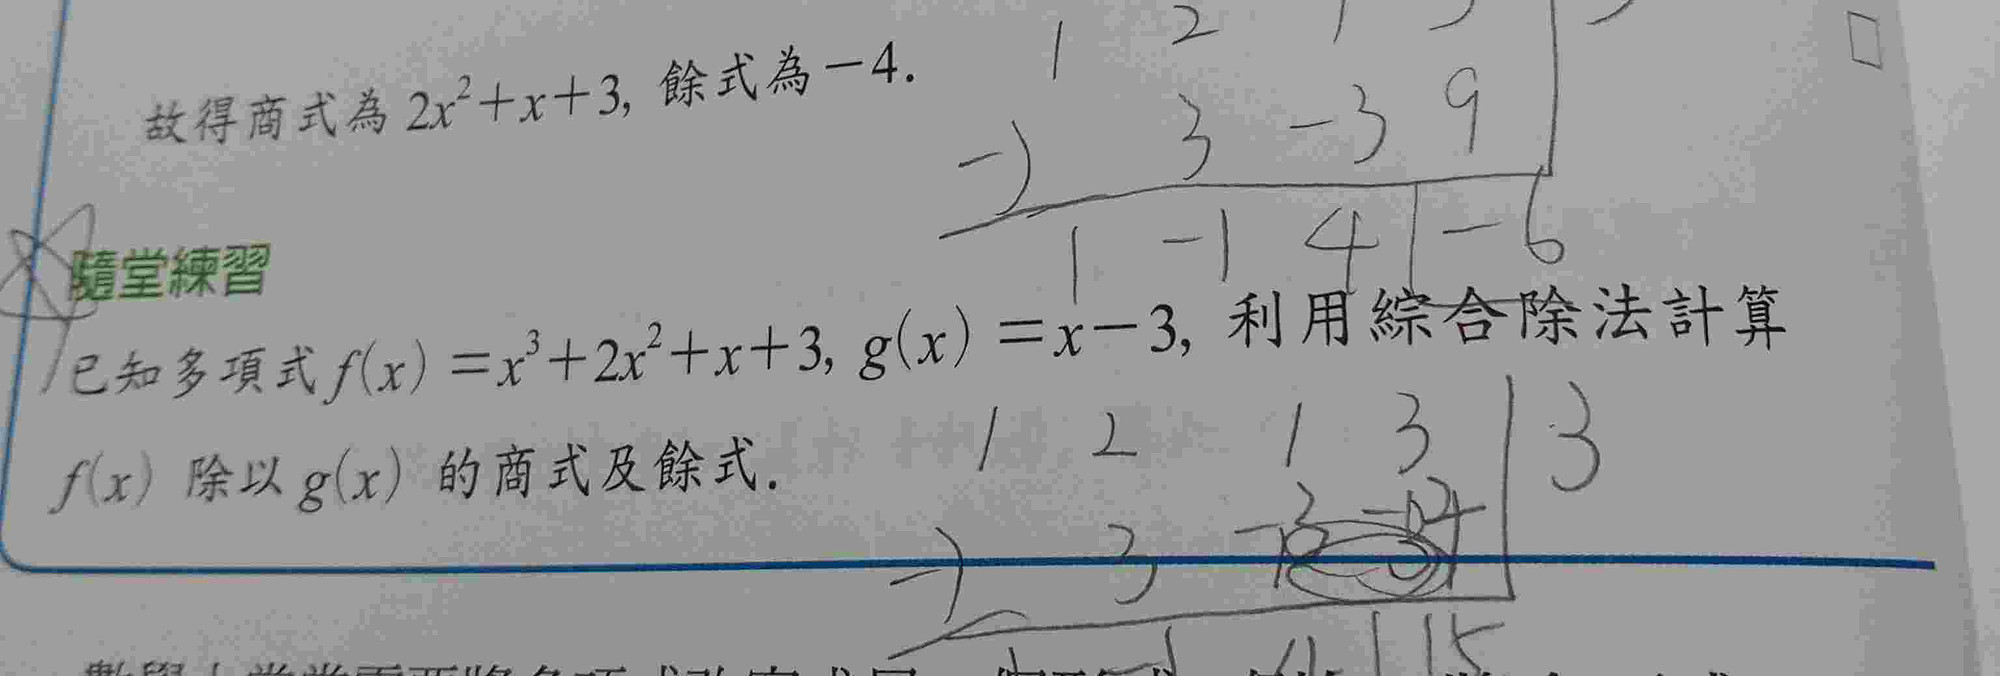 故得商式為 2x²+x+3, 餘式為 −4.
1 2 1
−) 3 −3 9
1 −1 4 −6
隨堂練習
已知多項式 f(x) =x³+2x²+x+3, g(x) =x−3, 利用綜合除法計算
f(x) 除以 g(x) 的商式及餘式.
1 2 1 3 3
−) 3 −3
15